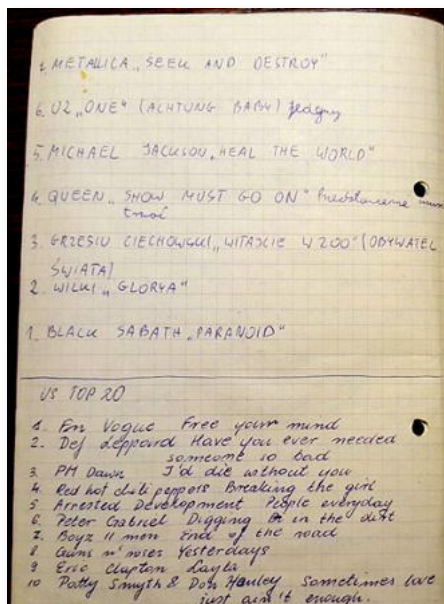 7. METALLICA „SEEK AND DESTROY"
6. U2 „ONE" (ACHTUNG BABY) Jedyny
5. MICHAEL JACKSON „HEAL THE WORLD"
4. QUEEN „SHOW MUST GO ON" Przedstawienie musi
trwać
3. GRZESIU CIECHOWSKI „WITAJCIE W ZOO" (OBYWATEL
ŚWIATA)
2. WILKI „GLORYA"
1. BLACK SABATH „PARANOID"
US TOP 20
1. En Vogue Free your mind
2. Def Leppard Have you ever needed
someone so bad
3. PM Dawn I'd die without you
4. Red hot chili peppers Breaking the girl
5 Arrested Development People everyday
6. Peter Gabriel Digging in the dirt
7. Boyz II men End of the road
8 Guns n' roses Yesterdays
9 Eric Clapton Layla
10 Patty Smyth & Don Henley Sometimes love
just ain't enough.